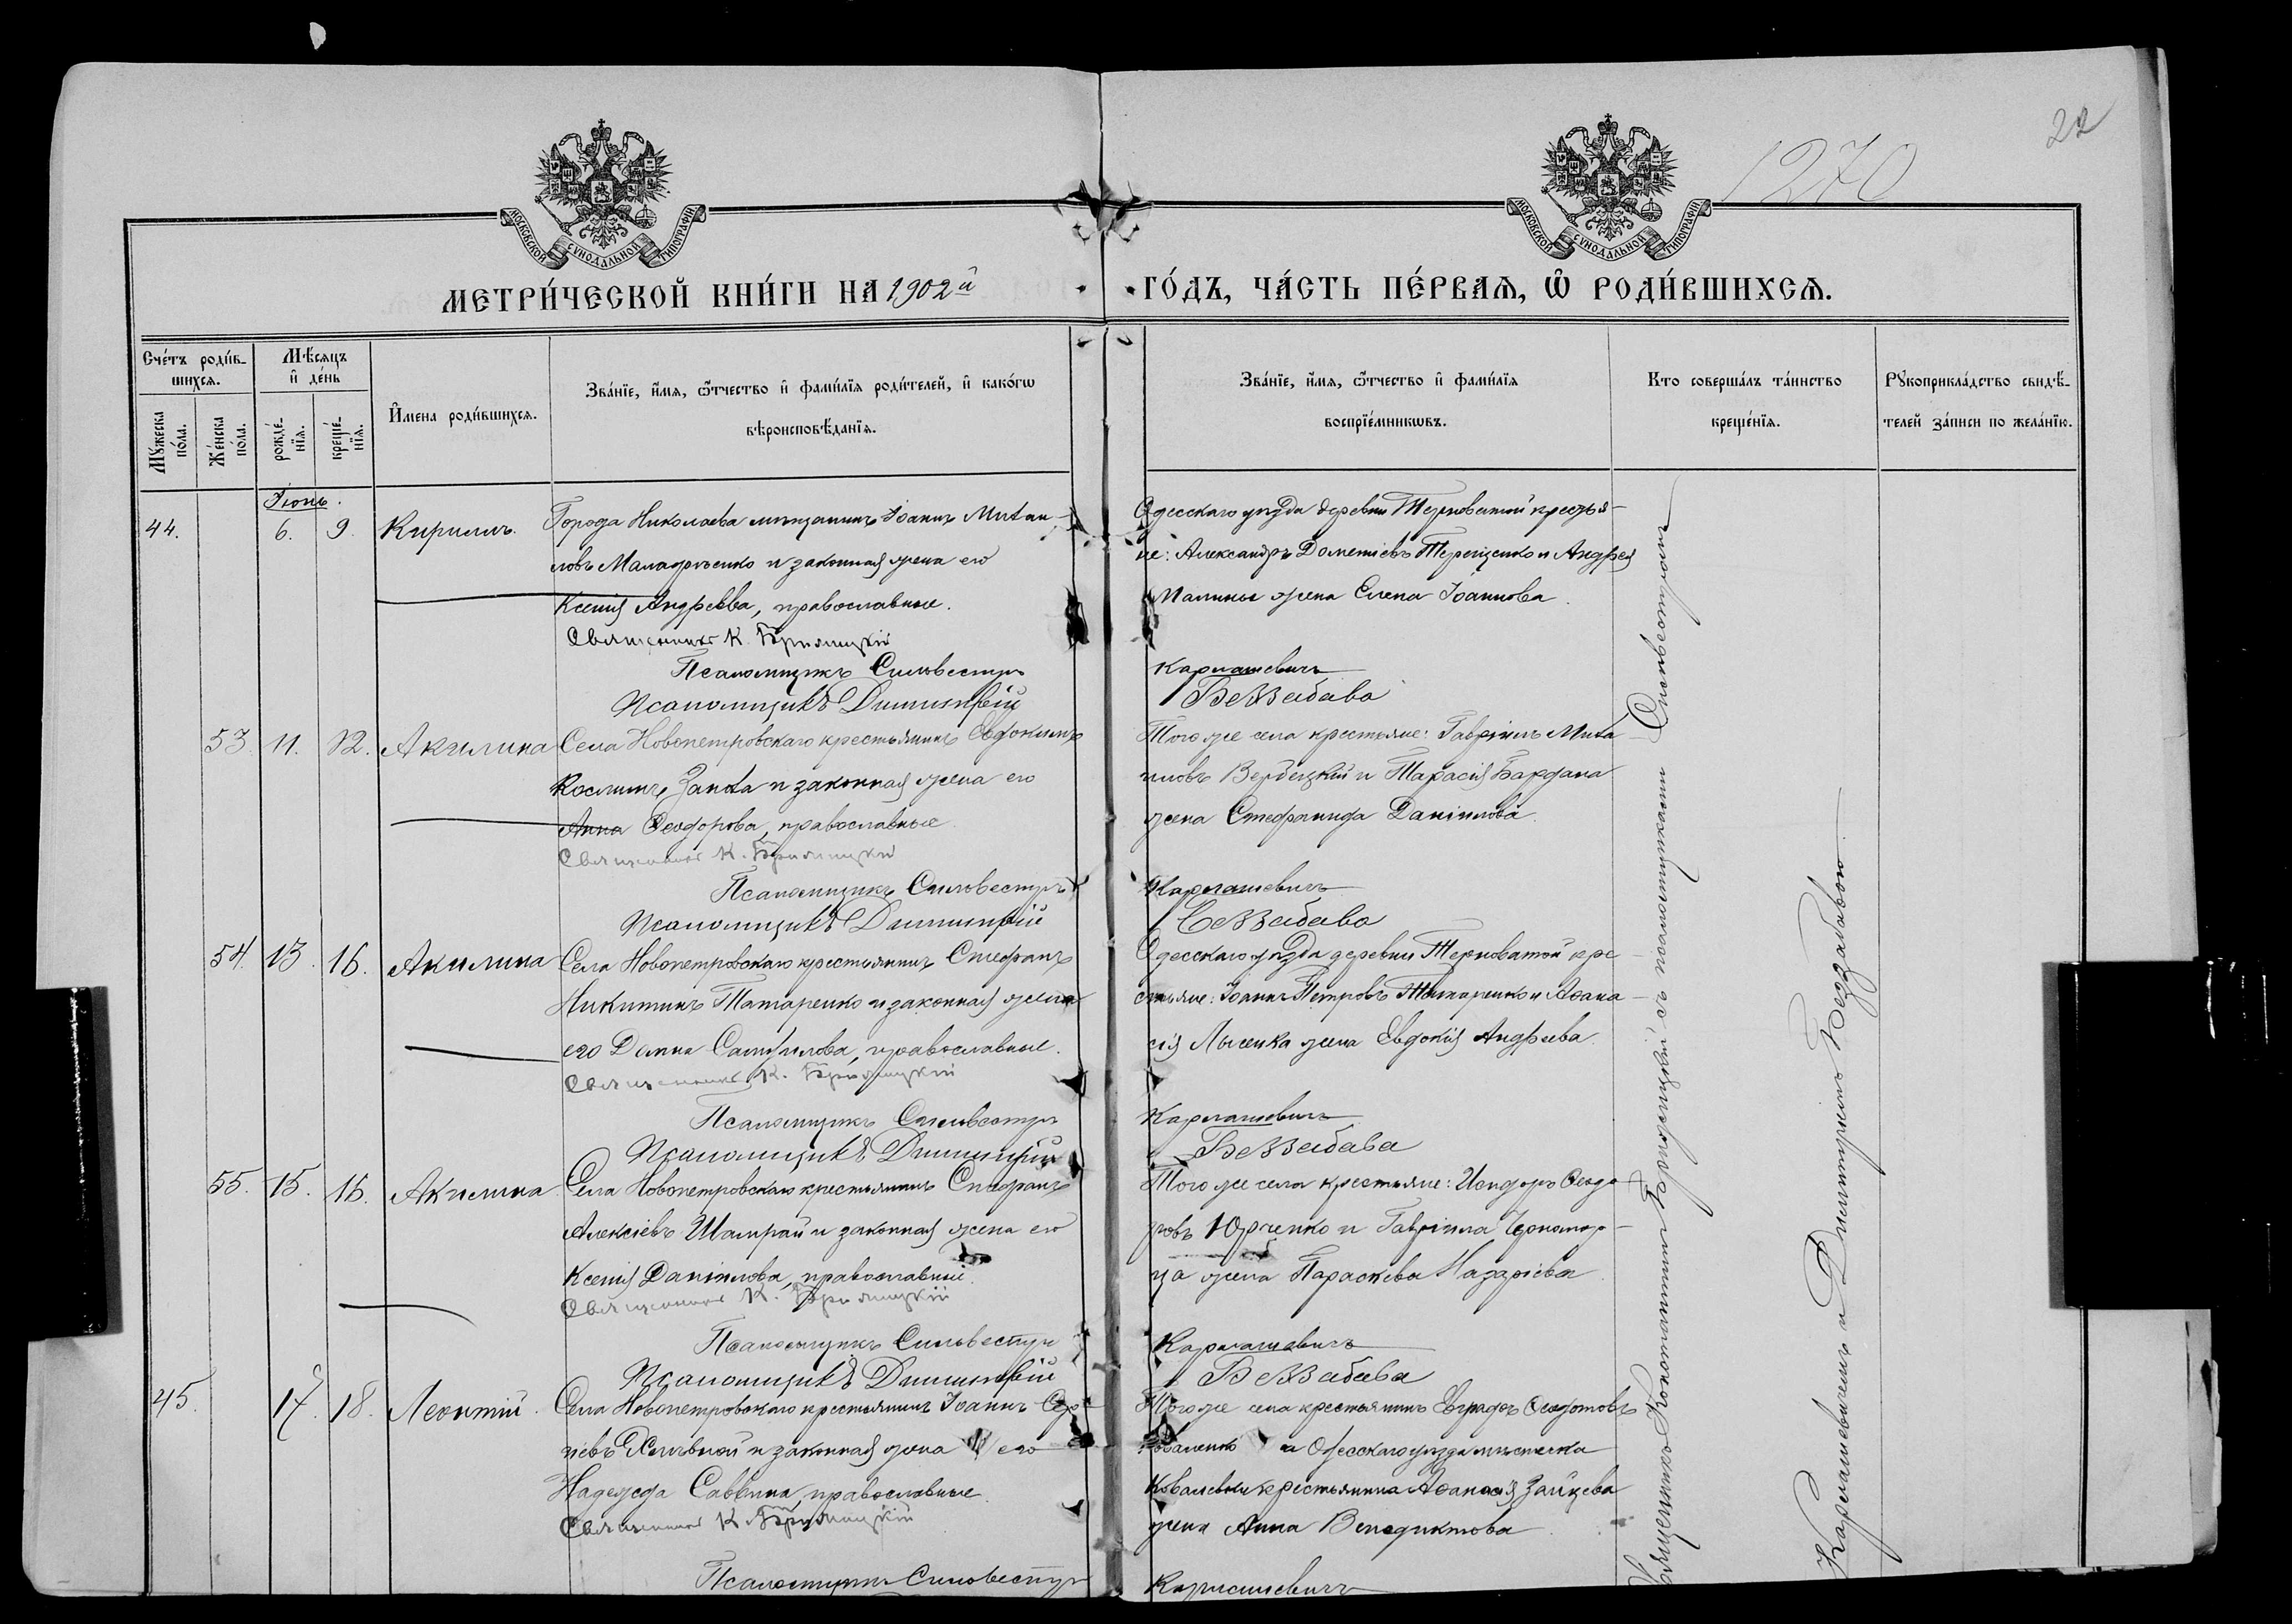 22
1270
МОСКОВСКОЙ СѴНОДАЛЬНОЙ ТИПОГРАФІИ
МОСКОВСКОЙ СѴНОДАЛЬНОЙ ТИПОГРАФІИ
МЕТРИ́ЧЕСКОЙ КНИ́ГИ НА 1902й ГО́ДЪ, ЧА́СТЬ ПЕ́РВАѦ, Ѡ҆ РОДИ́ВШИХСѦ.
Сче́тъ роди́в-
шихсѧ.
Мꙋ́жеска
по́ла.
Же́нска
по́ла.
Мѣ́сѧцъ
и҆ де́нь
рожде́-
нїѧ.
креще́-
нїѧ.
И҆мена роди́вшихсѧ.
Зва́нїе, и҆́мѧ, ѻ҆́тчество и҆ фами́лїѧ роди́телей, и҆ како́гѡ
вѣроисповѣ́данїѧ.
Зва́нїе, и҆́мѧ, ѻ҆́тчество и҆ фами́лїѧ
воспрїе́мникѡвъ.
Кто соверша́лъ та́инство
креще́нїѧ.
Рꙋкоприкла́дство свидѣ́-
телей за́писи по жела́нїю.
Іюнь.
44. 6. 9. Кириллъ. Города Николаева мѣщанинъ Іоаннъ Михаи-
ловъ и законная жена его
Ксенія Андреева, православные.
Священникъ К.
Псаломщикъ Сильвестръ
Псаломщикъ Димитрій
Одесскаго уѣзда деревни Терноватой крестья-
не: Александръ Дометіевъ Терещенко и Андрея
Малины жена Елена Іоаннова.
Кармашевичъ
Беззабава
53. 11. 12. Акилина Села Новопетровскаго крестьянинъ Евфокимъ
Косминъ и законная жена его
Анна Феодорова, православные
Священникъ К.
Псаломщикъ Сильвестръ
Псаломщикъ Димитрій
Того же села крестьяне: Гавріилъ Миха
иловъ Вербецкій и Тарасія Бардана
жена Стефанида Даніилова.
Кармашевичъ
Беззабава
54. 13. 16. Акилина Села Новопетровскаго крестьянинъ Стефанъ
Никитинъ Татаренко и законная жена
его Домна Самуилова, православные.
Священникъ К.
Псаломщикъ Сильвестръ
Псаломщикъ Димитрій
Одесскаго уѣзда деревни Терноватой кре-
стьяне: Іоаннъ Петровъ Татаренко и Афана-
сія Лысенка жена Евдокія Андреева.
Кармашевичъ
Беззабава
55. 15. 16. Акилина Села Новопетровскаго крестьянинъ Стефанъ
Алексіевъ Шамрай и законная жена его
Ксенія Даніилова, православные.
Священникъ К.
Псаломщикъ Сильвестръ
Псаломщикъ Димитрій
Того же села крестьяне: Исидоръ Феодо-
ровъ Юрченко и Гавріила Черномор-
ца жена Параскева Назаріева
Кармашевичъ
Беззабава
45. 17. 18. Леонтій. Села Новопетровскаго крестьянинъ Іоаннъ Сер-
гіевъ и законная жена его
Надежда Саввина, православные.
Священникъ К.
Псаломщикъ Сильвестръ
Того же села крестьянинъ Евграфъ Феодотовъ
Коваленко и Одесскаго уѣзда мѣстечка
Ковалевки крестьянина Афанасія Зайцева
жена Анна Венедиктова.
Кармашевичъ
Священникъ Константинъ съ псаломщиками Сильвестромъ
Кармашевичемъ и Димитріемъ Беззабавою.